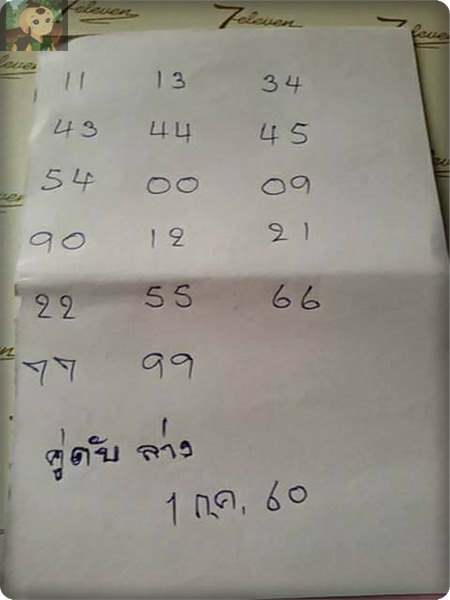 7eleven
7eleven
11 13 34
43 44 45
54 00 09
90 12 21
22 55 66
77 99
คู่ดับ ล่าง
1 ก.ค. 60